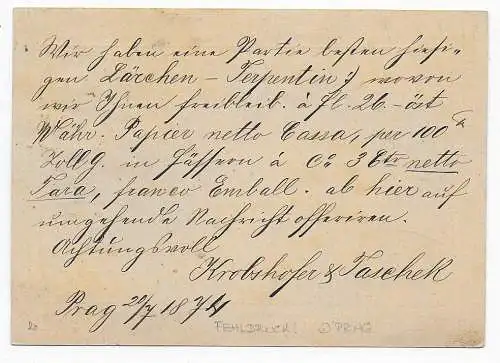 Wir haben eine Partie besten hiesi-
gen Lärchen-Terpentin, wovon
wir Ihnen freibleib. à fl. 26.- öst
Währ. Papier netto Cassa, per 100 ℔
Zollg. in Fässern à Ca 3 Ctr netto
Tara, franco Emball. ab hier auf
umgehende Nachricht offeriren.
Achtungsvoll
Krobshofer & Taschek
Prag 29/7 1874
FEHLDRUCK! PRAG